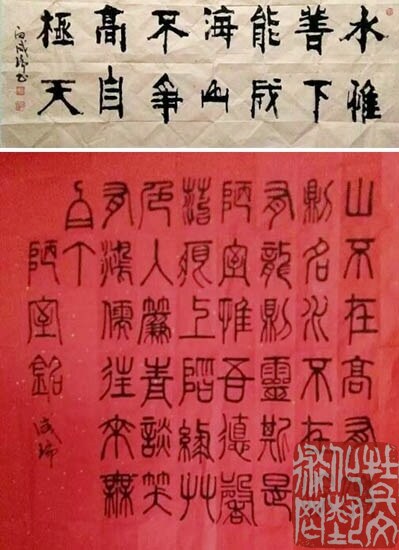 水惟
善下
能成
海山
不爭
高自
極天
山不在高有
則名水不在
有龍則靈斯是
陋室惟吾德馨
苔痕上階綠艸
色入簾青談笑
有鴻儒往來無
白丁
陋室銘
成瑞